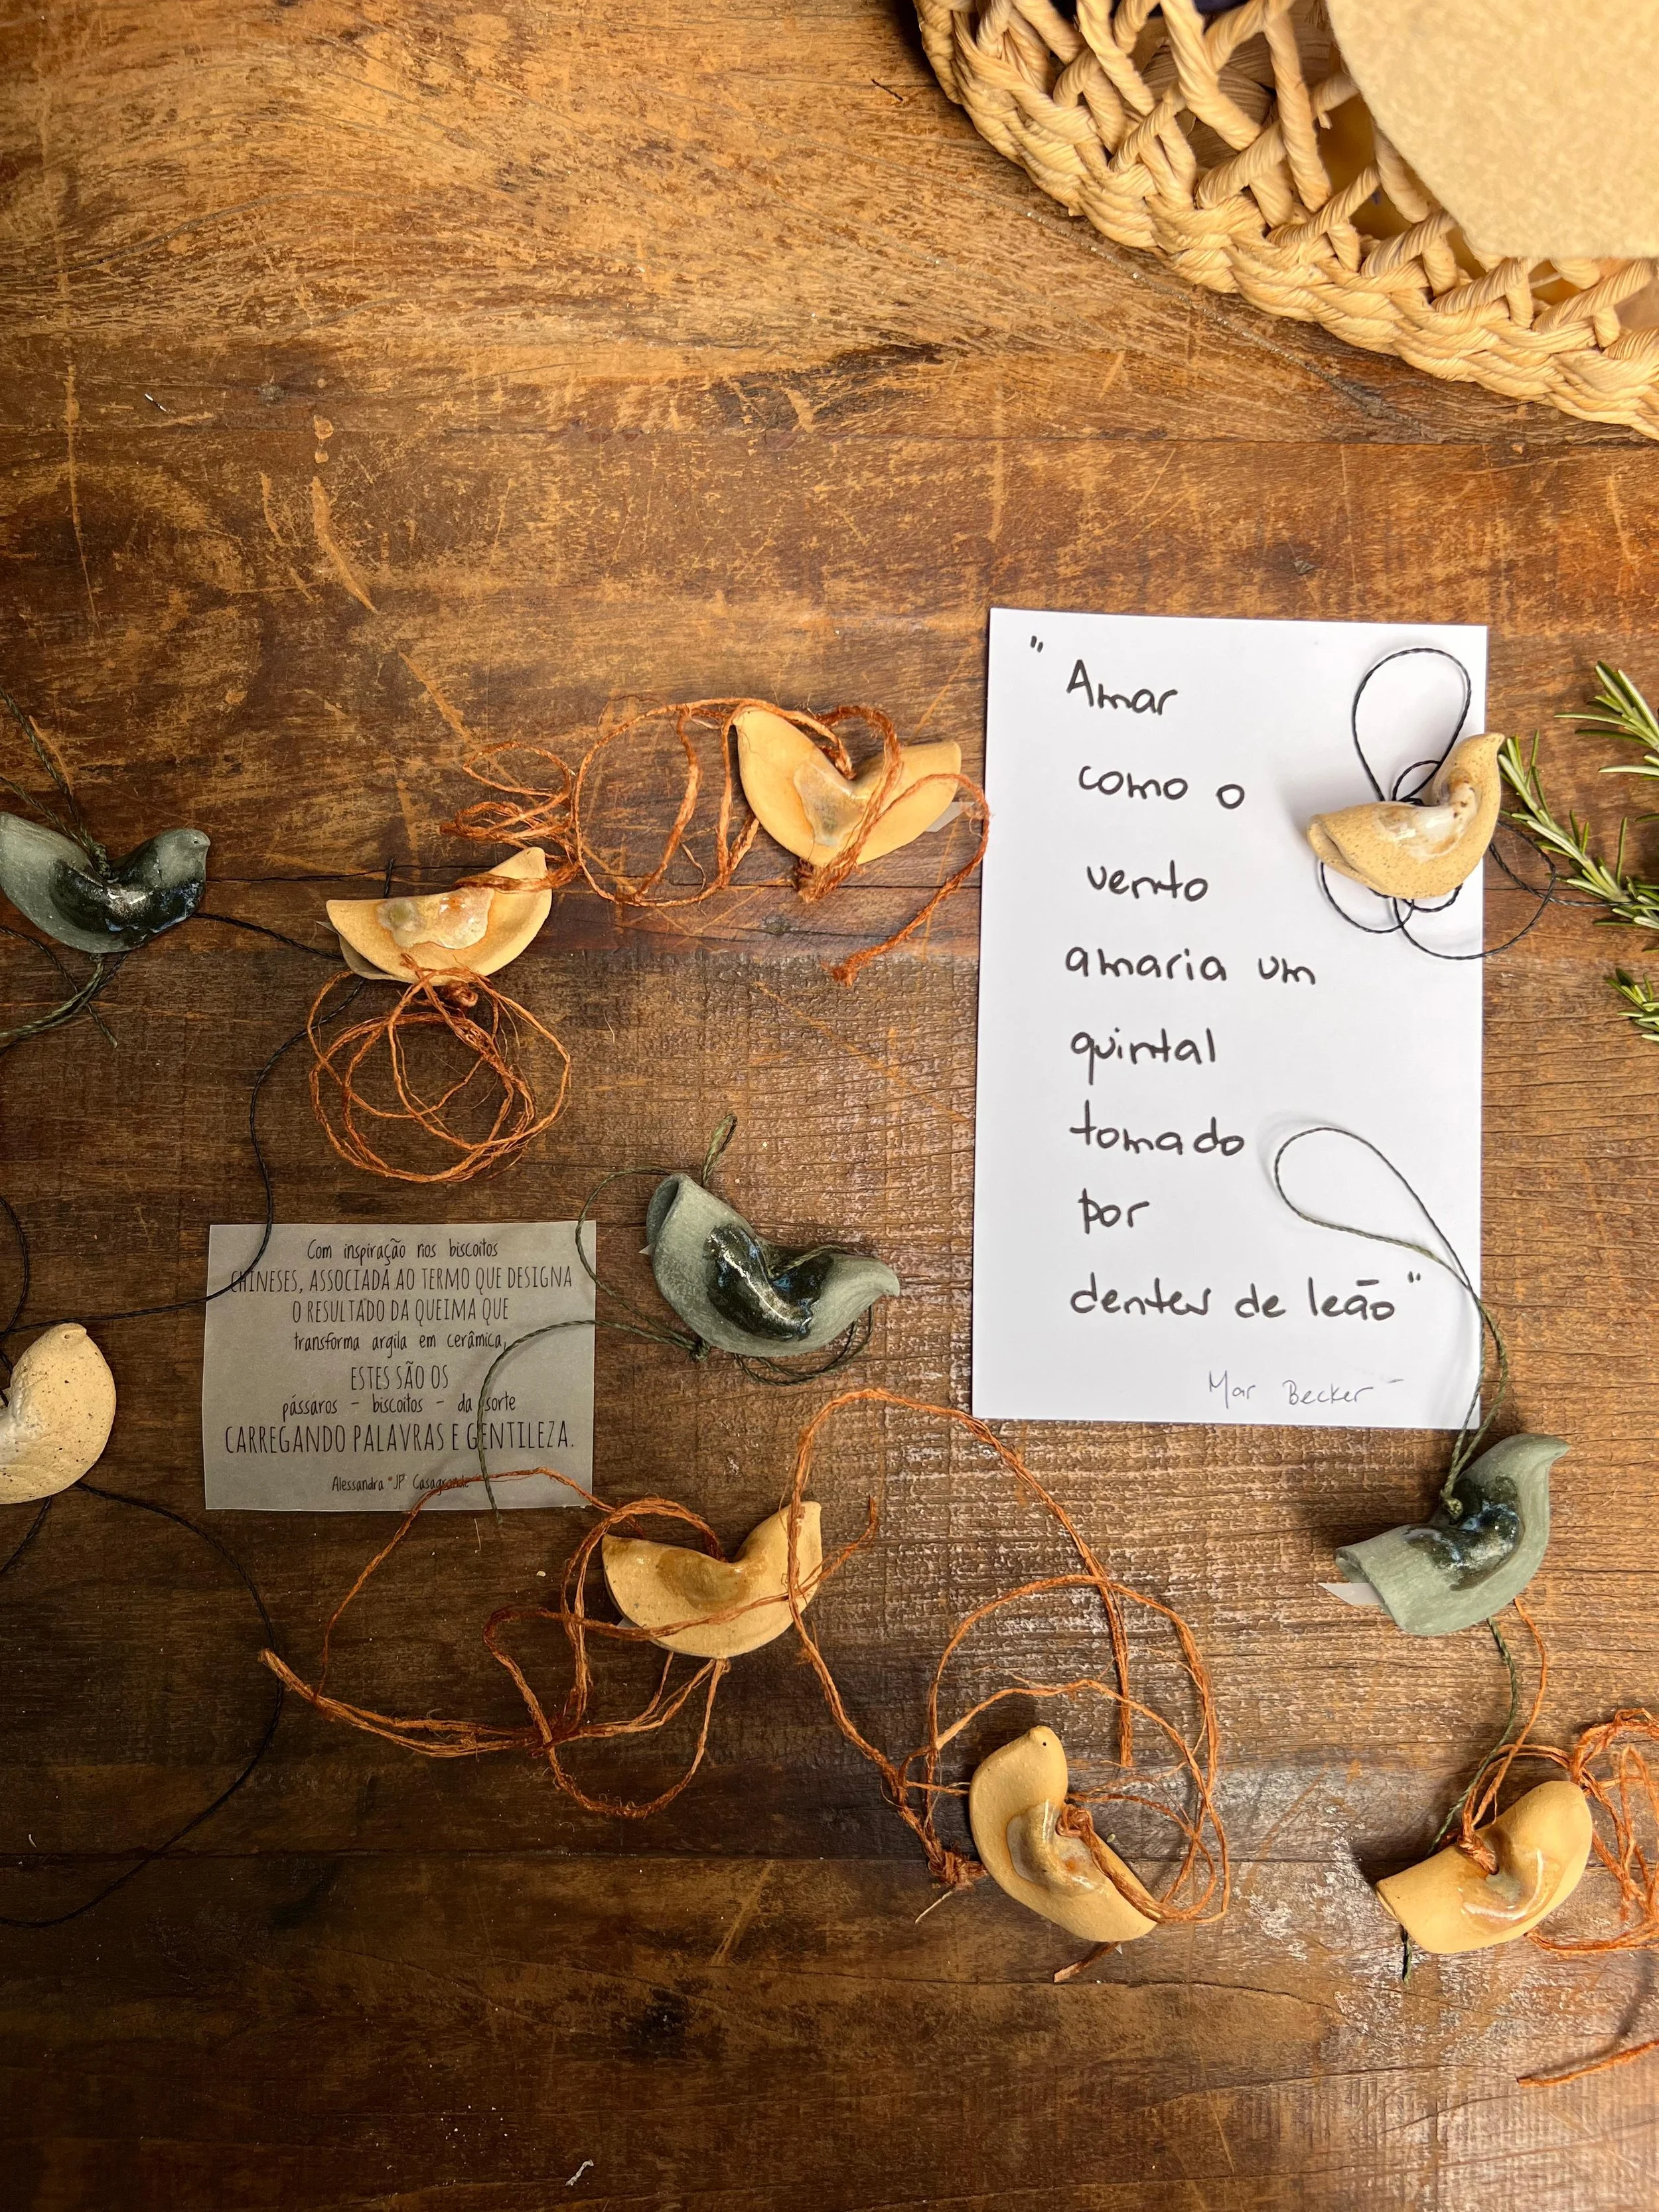 Com inspiração nos biscoitos
CHINESES, ASSOCIADA AO TERMO QUE DESIGNA
O RESULTADO DA QUEIMA QUE
transforma argila em cerâmica,
ESTES SÃO OS
pássaros - biscoitos - da sorte
CARREGANDO PALAVRAS E GENTILEZA.
Alessandra "JP" Casagrande
"Amar
como o
vento
amaria um
quintal
tomado
por
dentes de leão"
Mar Becker